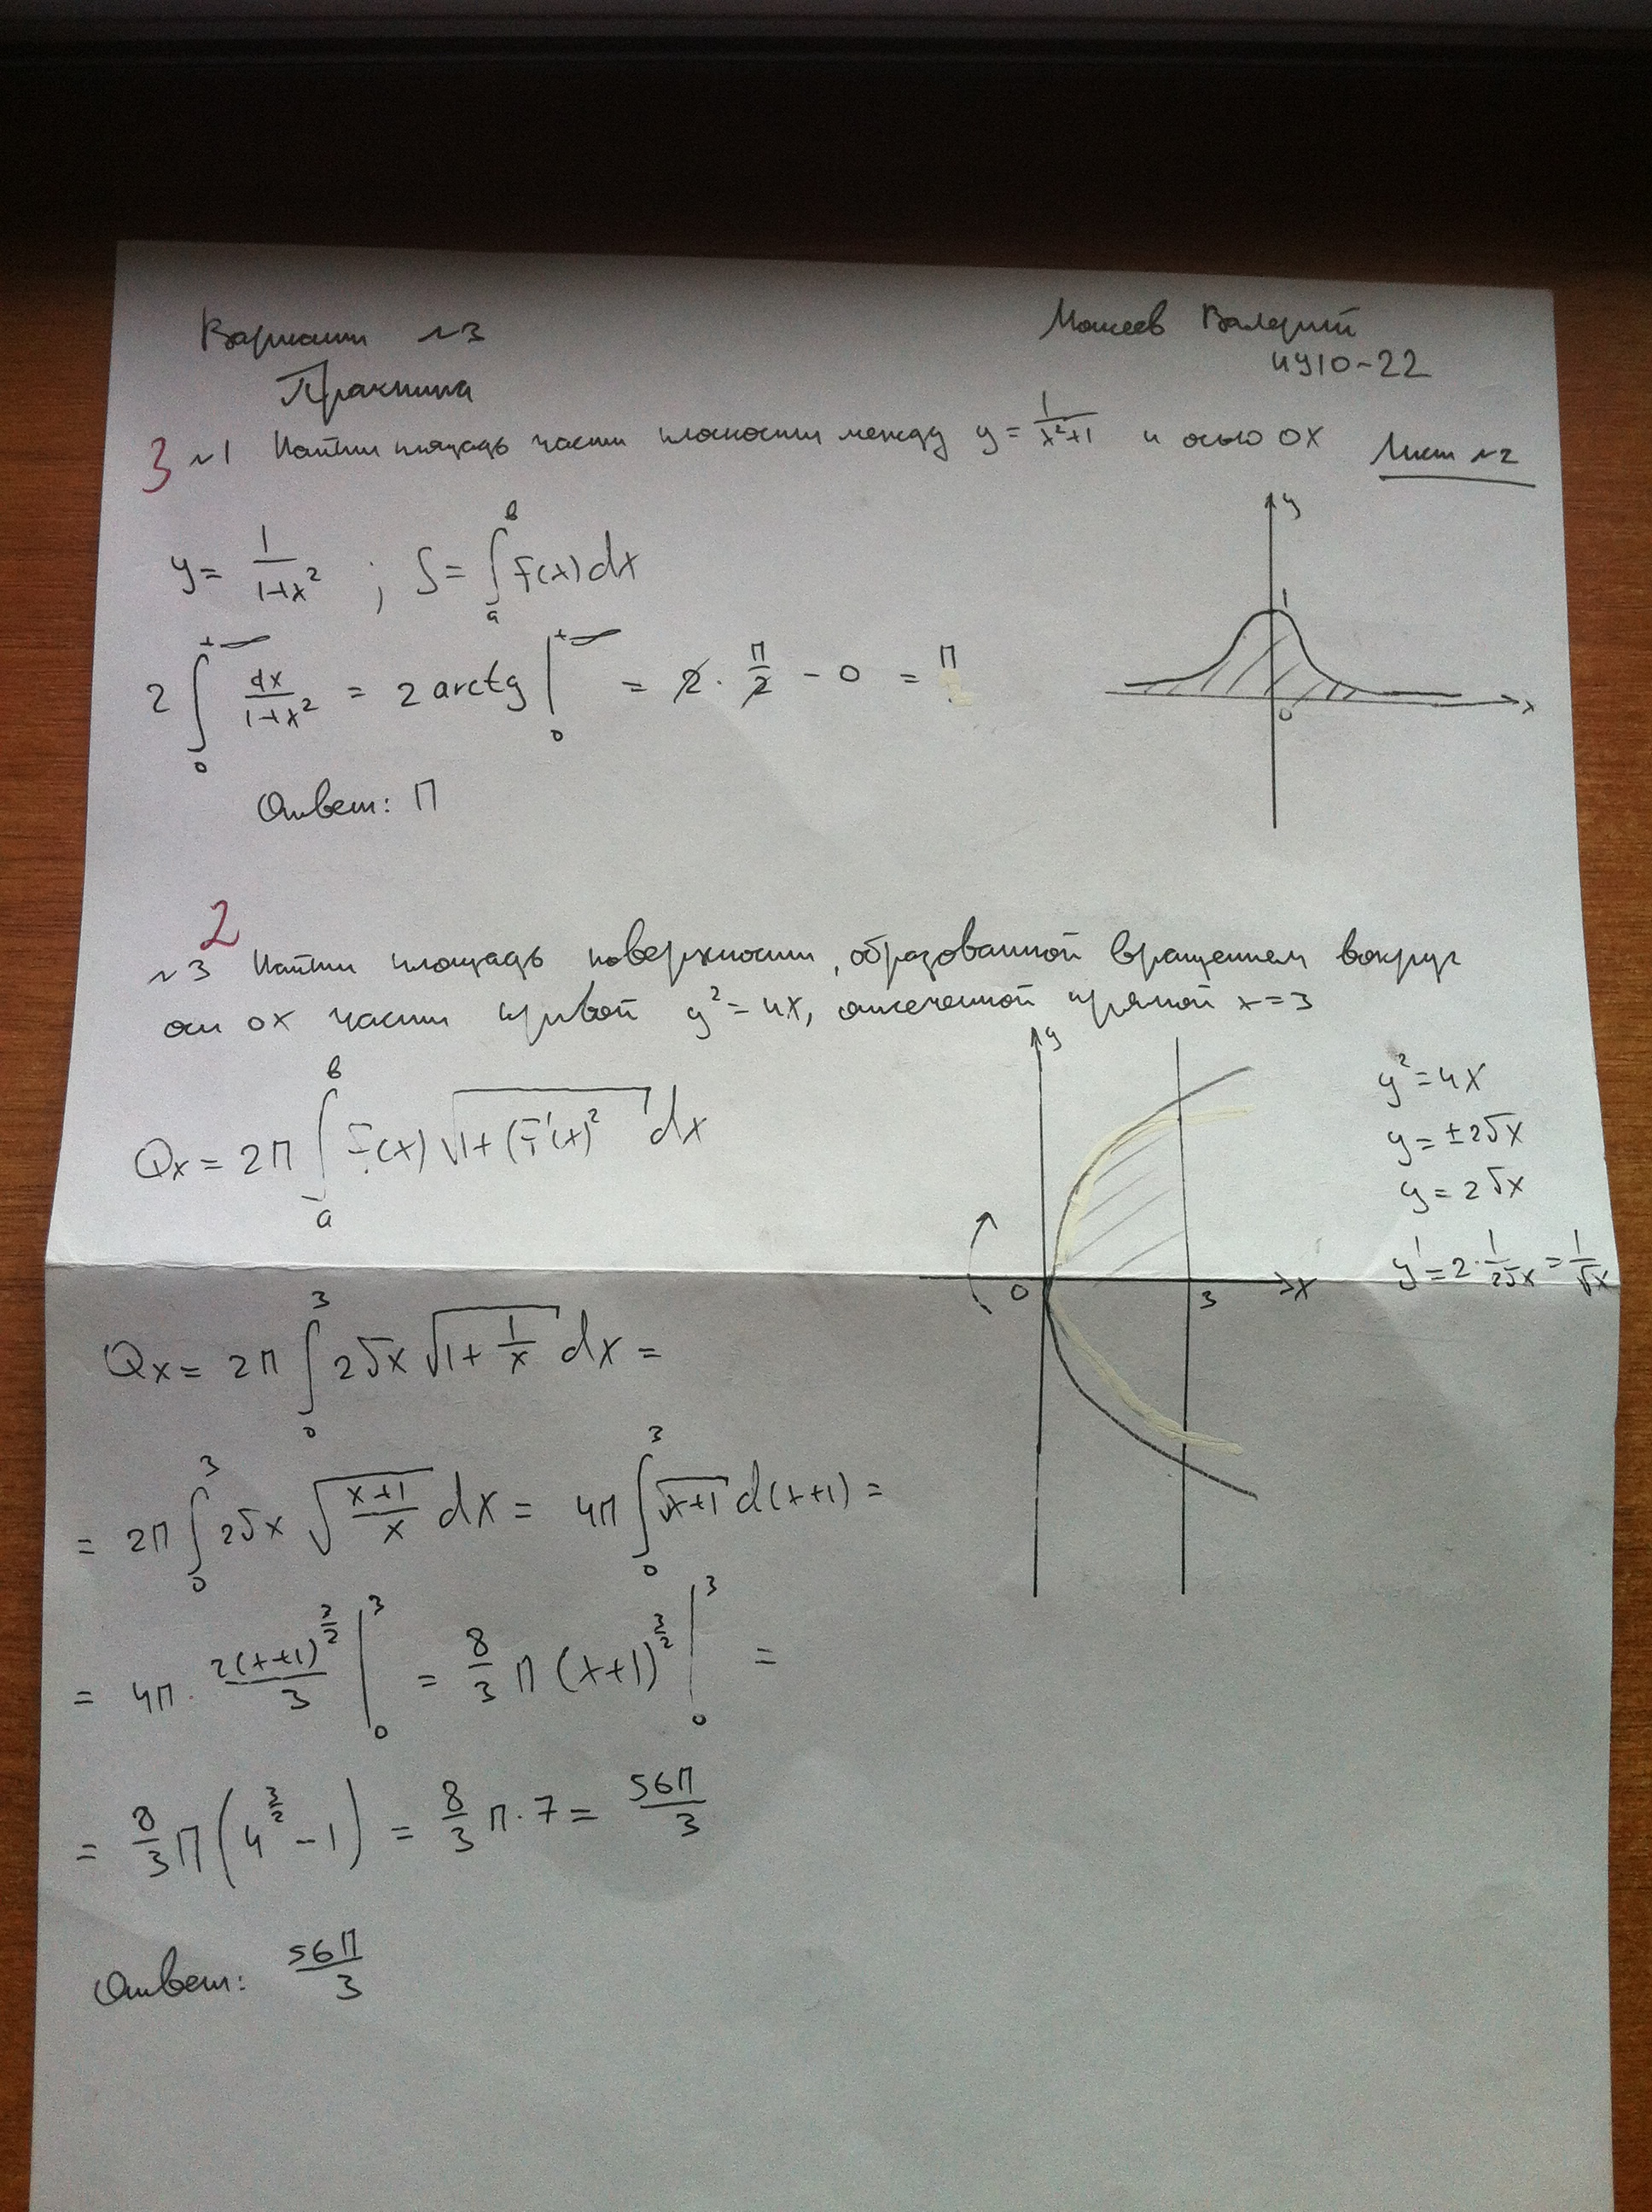 Вариант №3
Моисеев Валерий
ИУ10-22
Практика
3 №1 Найти площадь части плоскости между y = 1/(x²+1) и осью OX
Лист №2
y = 1/(1+x²) ; S = ∫_a^b f(x)dx
2 ∫_0^{+∞} dx/(1+x²) = 2 arctg |_0^{+∞} = 2 · π/2 - 0 = π
y
1
0
x
Ответ: π
2
№3 Найти площадь поверхности, образованной вращением вокруг
оси OX части кривой y² = 4x, отсеченной прямой x=3
Qx = 2π ∫_a^b f(x) √(1+(f'(x)² dx
y
0
3
x
y² = 4x
y = ±2√x
y = 2√x
y' = 2 · 1/(2√x) = 1/√x
Qx = 2π ∫_0^3 2√x √(1+1/x) dx =
= 2π ∫_0^3 2√x √((x+1)/x) dx = 4π ∫_0^3 √(x+1) d(x+1) =
= 4π · 2(x+1)^{3/2}/3 |_0^3 = 8/3 π (x+1)^{3/2} |_0^3 =
= 8/3 π (4^{3/2} - 1) = 8/3 π · 7 = 56π/3
Ответ: 56π/3